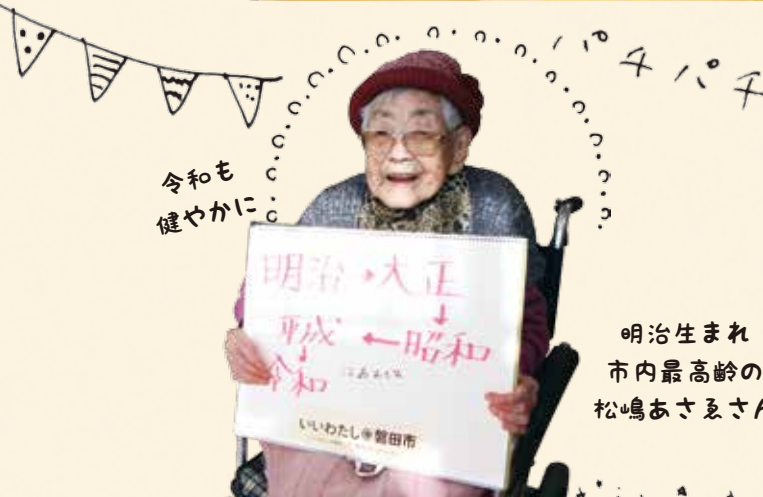 パチパチ
令和も
健やかに
明治→大正
↓
平成←昭和
↓
令和
いいわたし磐田市
明治生まれ
市内最高齢の
松嶋あさゑさん